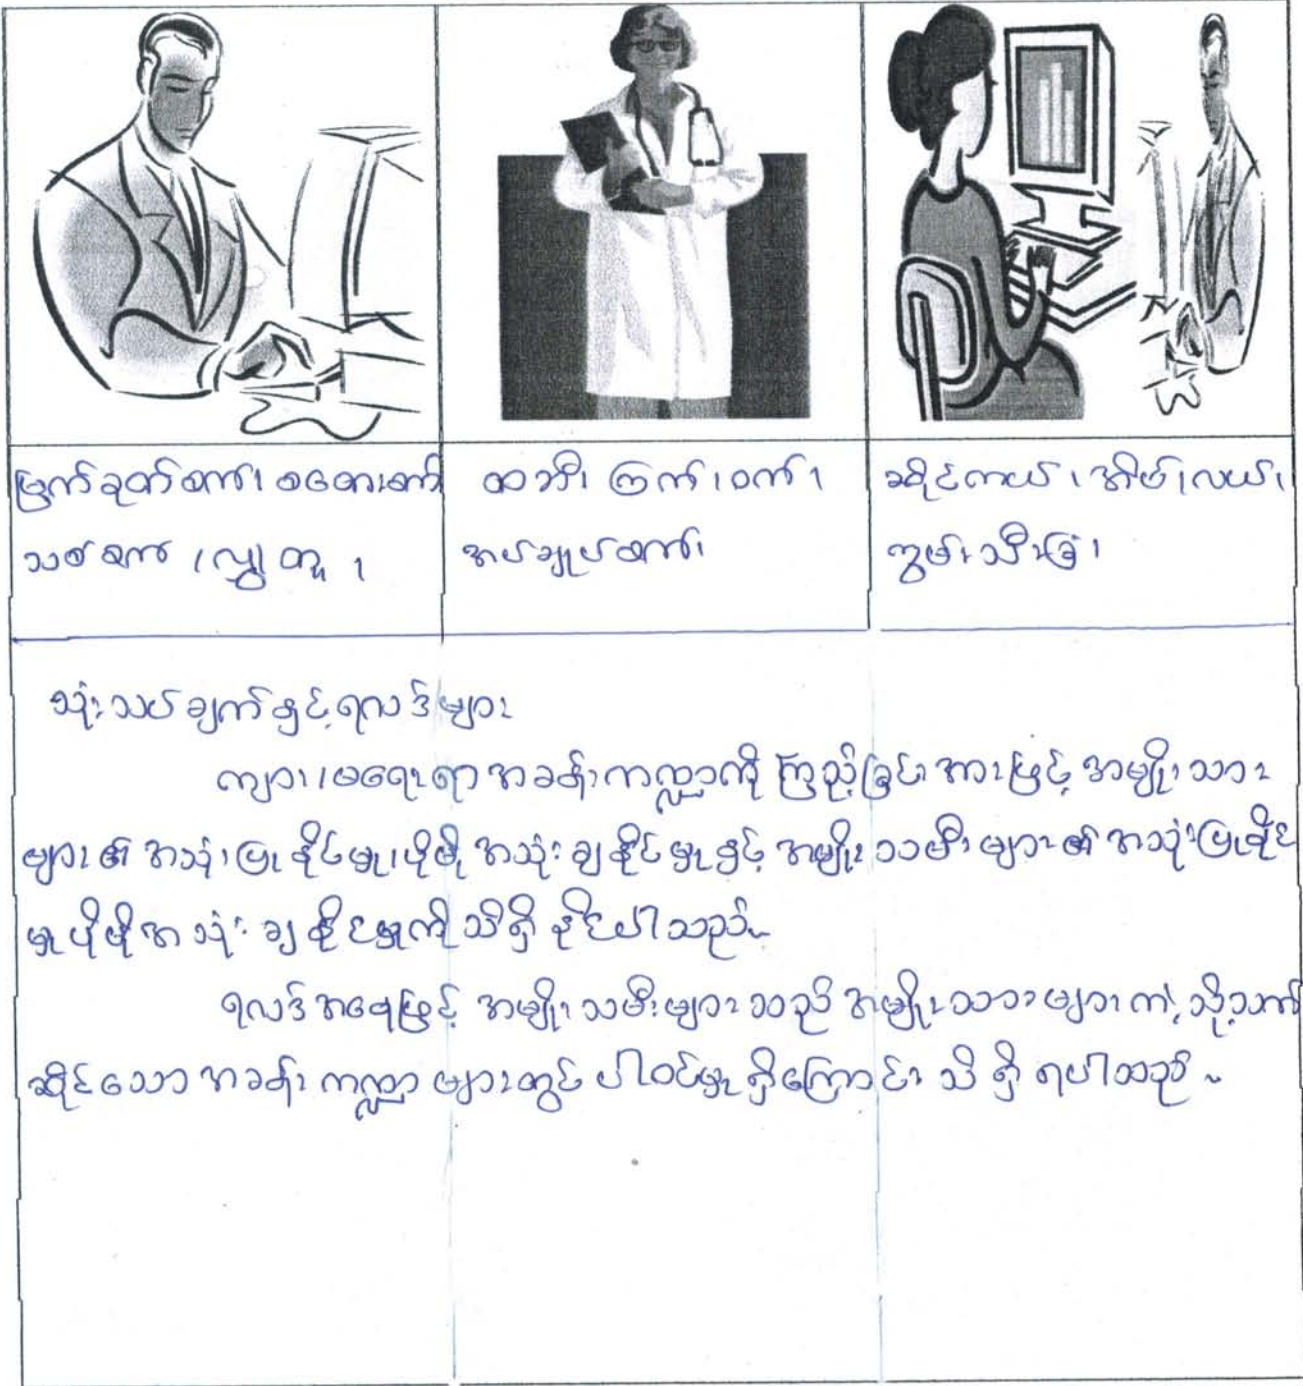 မြက်ခုတ်စက်၊ စတေးတက်
သစ်စက်၊ လွှ၊ တူ၊
ထဘီ၊ ကြက်၊ ဝက်၊
အပ်ချုပ်စက်၊
ဆိုင်ကယ်၊ အိမ်၊ လယ်၊
ကွမ်းသီးခြံ၊
သုံးသပ်ချက်နှင့်ရလဒ်များ
ကျား၊ မရေးရာအခန်းကဏ္ဍကို ကြည့်ခြင်းအားဖြင့် အမျိုးသား
များ၏ အသုံးပြုနိုင်မှု၊ ပိုမို အသုံးချနိုင်မှုနှင့် အမျိုးသမီးများ၏ အသုံးပြုနိုင်
မှု ပိုမိုအသုံးချနိုင်မှုကို သိရှိနိုင်ပါသည်။
ရလဒ်အနေဖြင့် အမျိုးသမီးများသည် အမျိုးသားများကဲ့သို့သက်
ဆိုင်သော အခန်းကဏ္ဍများတွင် ပါဝင်မှုရှိကြောင်း သိရှိရပါသည်။